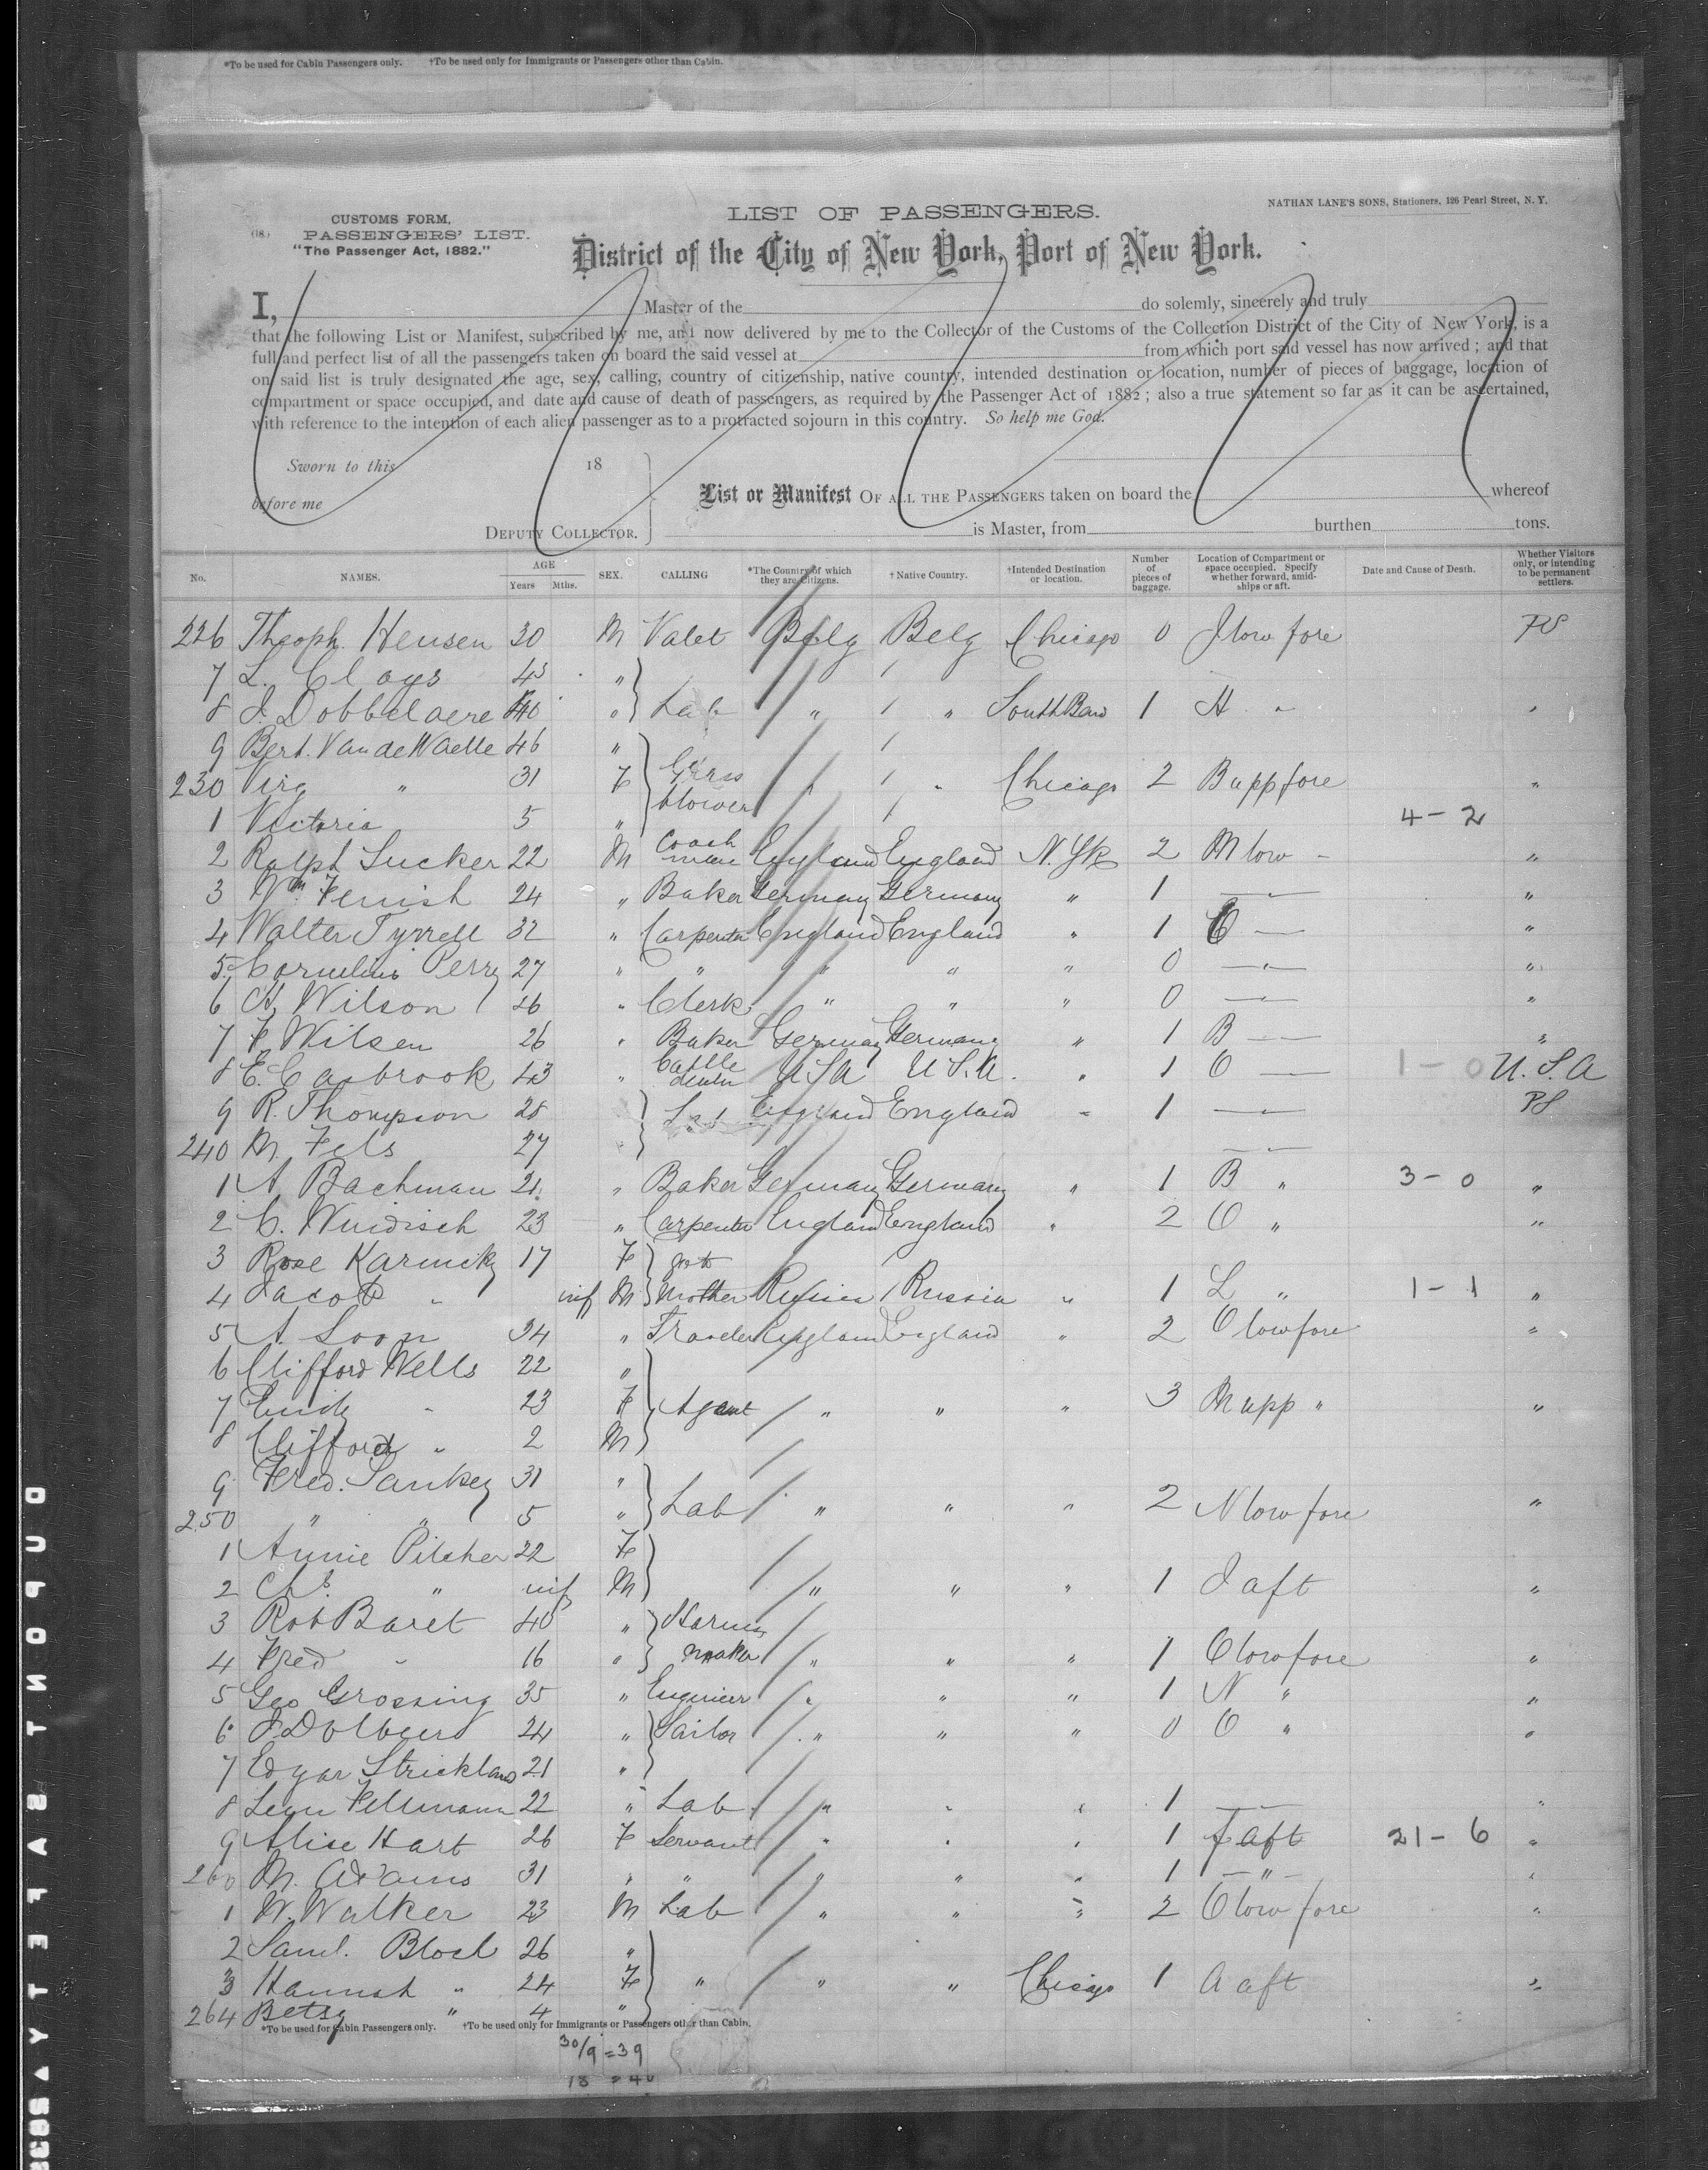 *To be used for Cabin Passengers only. †To be used only for Immigrants or Passengers other than Cabin.
NATHAN LANE'S SONS, Stationers, 126 Pearl Street, N. Y.
CUSTOMS FORM.
(18.) PASSENGERS' LIST.
"The Passenger Act, 1882."
LIST OF PASSENGERS.
District of the City of New York, Port of New York.
I, Master of the do solemly, sincerely and truly
that the following List or Manifest, subscribed by me, and now delivered by me to the Collector of the Customs of the Collection District of the City of New York, is a
full and perfect list of all the passengers taken on board the said vessel at from which port said vessel has now arrived; and that
on said list is truly designated the age, sex, calling, country of citizenship, native country, intended destination or location, number of pieces of baggage, location of
compartment or space occupied, and date and cause of death of passengers, as required by the Passenger Act of 1882; also a true statement so far as it can be ascertained,
with reference to the intention of each alien passenger as to a protracted sojourn in this country. So help me God.
Sworn to this 18
before me
DEPUTY COLLECTOR.
List or Manifest OF ALL THE PASSENGERS taken on board the whereof
is Master, from burthen tons.
No. NAMES. AGE Years Mths. SEX. CALLING *The Country of which they are Citizens. †Native Country. †Intended Destination or location. Number of pieces of baggage. Location of Compartment or space occupied. Specify whether forward, amidships or aft. Date and Cause of Death. Whether Visitors only, or intending to be permanent settlers.
226 Theoph. Hensen 30 M Valet Belg Belg Chicago 0 J low fore PS
7 L. Clays 43 "
8 J. Dobbelaere 40 " Lab " " South Ben 1 H " "
9 Bert. Van de Waelle 46 "
230 Virg " 31 F Glass blower " Chicago 2 B upp fore "
1 Victoria 5 " 4-2
2 Ralph Tucker 22 M Coach man England England N.Yk 2 M low - "
3 Wm Fenish 24 " Baker Germany Germany " 1 — " — "
4 Walter Tyrrell 32 " Carpenter England England " 1 O — "
5 Cornelius Perry 27 " " " " " 0 — " — "
6 H. Wilson 26 " Clerk " " " 0 — " — "
7 F Wilsen 26 " Baker Germany Germany " 1 B — "
8 E. Casbrook 43 " Cattle dealer USA U.S.A. " 1 O — 1-0 U.S.A
9 R. Thompson 28 Lab England England " 1 — " — PS
240 M. Fels 27 — " —
1 A. Bachman 21 " Baker Germany Germany " 1 B " 3-0 "
2 C. Windisch 23 " Carpenter England England " 2 O " "
3 Rose Karmiky 17 F
4 Jacob " inf M Mother Russia Russia " 1 L " 1-1 "
5 A. Soon 34 " Traveler England England " 2 O low fore "
6 Clifford Wells 22 "
7 Emily " 23 F Agent " " " 3 M upp " "
8 Clifford " 2 M
9 Fred. Sankey 31 "
250 " " 5 " Lab " " " 2 N low fore "
1 Annie Pilcher 22 F
2 Chs " inf M " " " 1 J aft "
3 Rob Baret 40 " Harness
4 Fred " 16 " maker " " " 1 O low fore "
5 Geo Grossing 35 " Engineer " " " 1 N " "
6 24 " Sailor " " " 0 O " "
7 Edgar Strickland 21 "
8 Leon Fellmann 22 " Lab " " " 1 — "
9 Alice Hart 26 F Servant " " " 1 F aft 21-6 "
260 M. Adams 31 " " " " " 1 — " — "
1 W. Walker 23 M Lab " " " 2 O low fore "
2 Saml. Bloch 26 "
3 Hannah " 24 F " " " Chicago 1 A aft "
264 Betsy " 4 "
*To be used for Cabin Passengers only. †To be used only for Immigrants or Passengers other than Cabin.
30/9 = 39